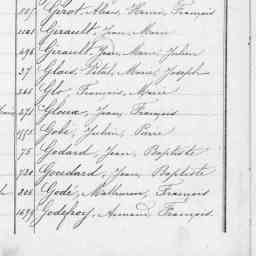 Girot, Alexis, Henri, François
1121 Girault, Jean Marie
496 Girault, Jean, Marie, Julien
27 Glais, Vital, Marie, Joseph
261 Glo, François, Marie
271 Gloux, Jean, François
1551 Gobé, Julien, Pierre
75 Godard, Jean, Baptiste
720 Goudard, Jean, Baptiste
205 Godé, Mathurin, François
1699 Godefroy, Armand, François